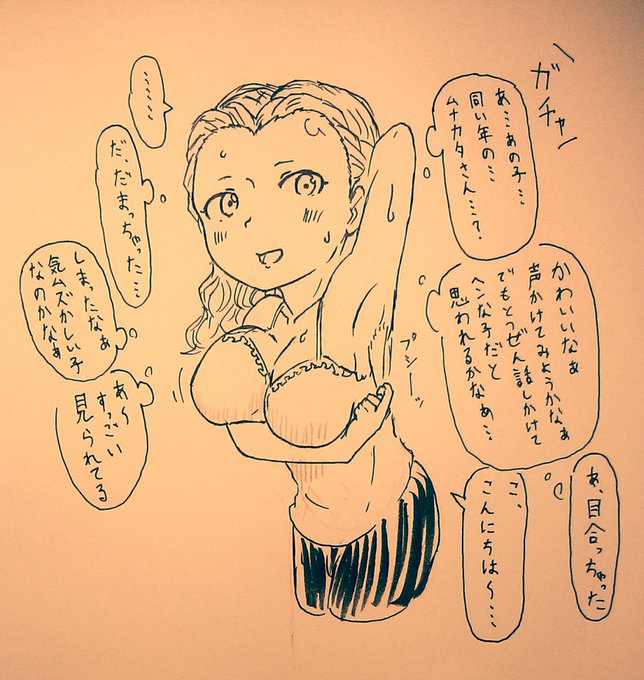 ガチャン
あ…あの子…
同い年の…
ムナカタさん…?
かわいいなぁ
声かけてみようかなぁ
でもとつぜん話しかけて
ヘンな子だと
思われるかなぁ…
あ、目合っちゃった
こ、
こんにちは〜…
プシーッ
………
だ、だまっちゃった…
しまったなぁ
気ムズかしい子
なのかなぁ
あ〜
すっごい
見られてる